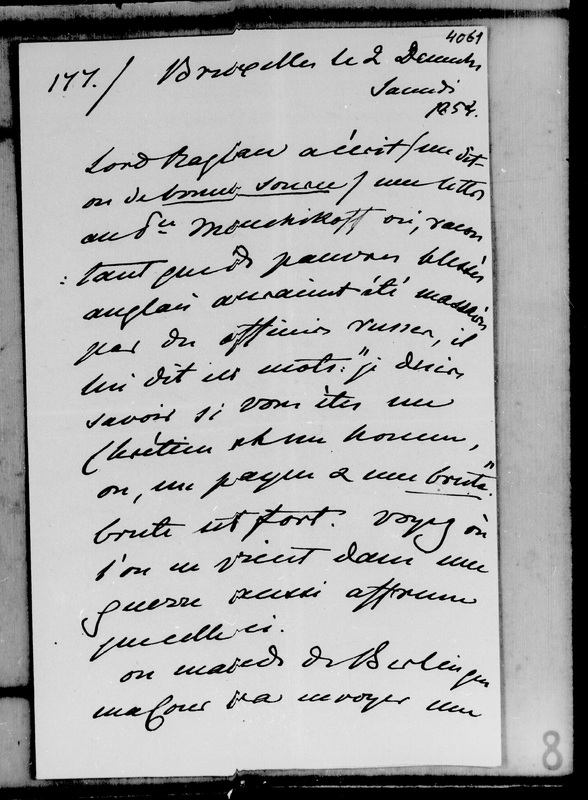 4061
177./ Bruxelles le 2 Decembre
Samedi
1854.
Lord Raglan a écrit (me dit
on de bonne source) une lettre
au Pce Menchikoff où, racon
tant que de pauvres blessés
anglais auraient été massacrés
par des officiers russes, il
lui dit ces mots: "je desire
savoir si vous êtes un
Chrétien et un homme,
ou, un payen & une brute."
brute est fort. Voyez où
l'on en vient dans une
guerre aussi affreuse
que celle ci.
on mande de Berlin que
ma Cour va envoyer une
8